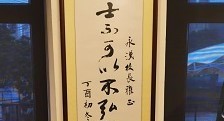 永漢校長雅正
士不可以不弘
丁酉初冬